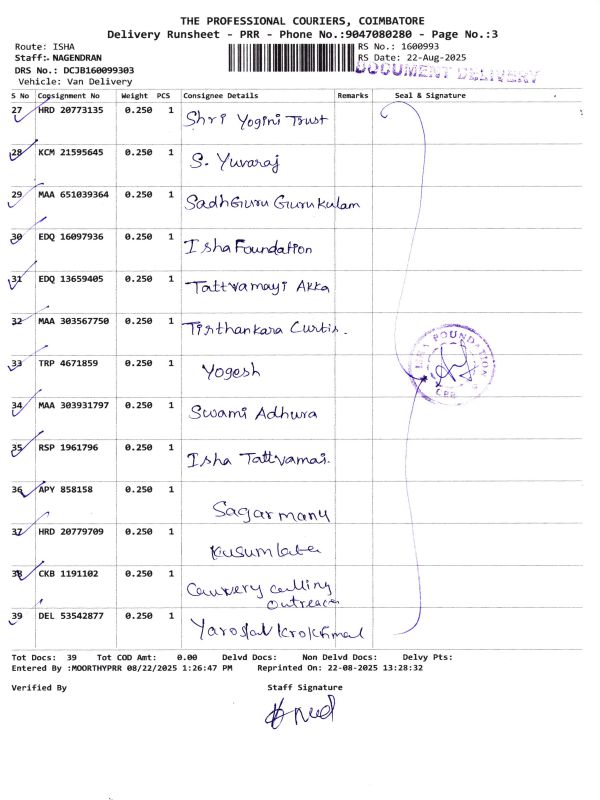 THE PROFESSIONAL COURIERS, COIMBATORE
Delivery Runsheet - PRR - Phone No.:9047080280 - Page No.:3
Route: ISHA
RS No.: 1600993
Staff: NAGENDRAN
RS Date: 22-Aug-2025
DRS No.: DCJB160099303
DOCUMENT DELIVERY
Vehicle: Van Delivery
S No Consignment No Weight PCS Consignee Details Remarks Seal & Signature
27 HRD 20773135 0.250 1 Shri Yogini Trust
28 KCM 21595645 0.250 1 S. Yuvaraj
29 MAA 651039364 0.250 1 SadhGuru Gurukulam
30 EDQ 16097936 0.250 1 Isha Foundation
31 EDQ 13659405 0.250 1 Tattvamayi Akka
32 MAA 303567750 0.250 1 Tirthankara Curtis.
ISHA FOUNDATION
33 TRP 4671859 0.250 1 Yogesh
CBE
34 MAA 303931797 0.250 1 Swami Adhura
35 RSP 1961796 0.250 1 Isha Tattvamai.
36 APY 858158 0.250 1 Sagarmany
37 HRD 20779709 0.250 1 Kusumlata
38 CKB 1191102 0.250 1 Cauvery calling
outreach
39 DEL 53542877 0.250 1 Yaroslav Krokhmal
Tot Docs: 39 Tot COD Amt: 0.00 Delvd Docs: Non Delvd Docs: Delvy Pts:
Entered By :MOORTHYPRR 08/22/2025 1:26:47 PM Reprinted On: 22-08-2025 13:28:32
Verified By Staff Signature